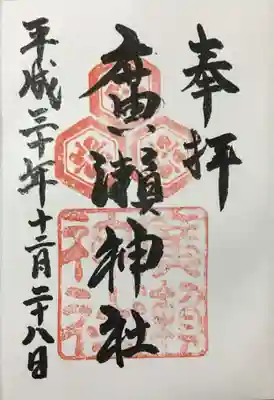 奉拝
廣瀬神社
平成三十年十二月二十八日
廣瀬
神社